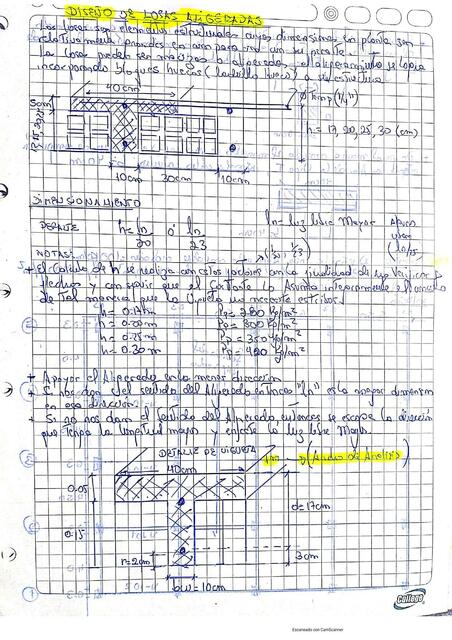 DISEÑO DE LOSAS ALIGERADAS
Las losas son elementos estructurales cuyas dimensiones en planta son
relativamente grandes en comparación con su peralte.
Las losas pueden ser macizas o aligeradas, el aligeramiento se logra
incorporando bloques huecos (ladrillo hueco) a su estructura
40cm
5cm
Ø Temp (1/4")
h = 17, 20, 25, 30 (cm)
10cm 30cm 10cm
DIMENSIONAMIENTO
PERALTE h = ln/20 ó ln/23
ln = luz libre Mayor
NOTAS:
+ El Calculo de h se realiza con estos factores con la finalidad de no Verificar
flechas y conseguir que el Cortante lo Asuma integramente el concreto
de tal manera que la vigueta no necesite estribos.
h = 0.17m Pp = 280 Kg/m²
h = 0.20m Pp = 300 Kg/m²
h = 0.25m Pp = 350 Kg/m²
h = 0.30m Pp = 420 Kg/m²
+ Apoyar el Aligerado en la menor dirección
+ Si nos dan el sentido del Aligerado entonces "ln" es la mayor dimension
en esa dirección.
+ Si no nos dan el sentido del Aligerado entonces se escoge la dirección
que tenga la longitud mayor y en este la luz libre Mayor.
DETALLE DE VIGUETA
1m (Ancho de Analisis)
40cm
0.05
0.15
d = 17cm
r = 2cm
3cm
bw = 10cm
College
Escaneado con CamScanner